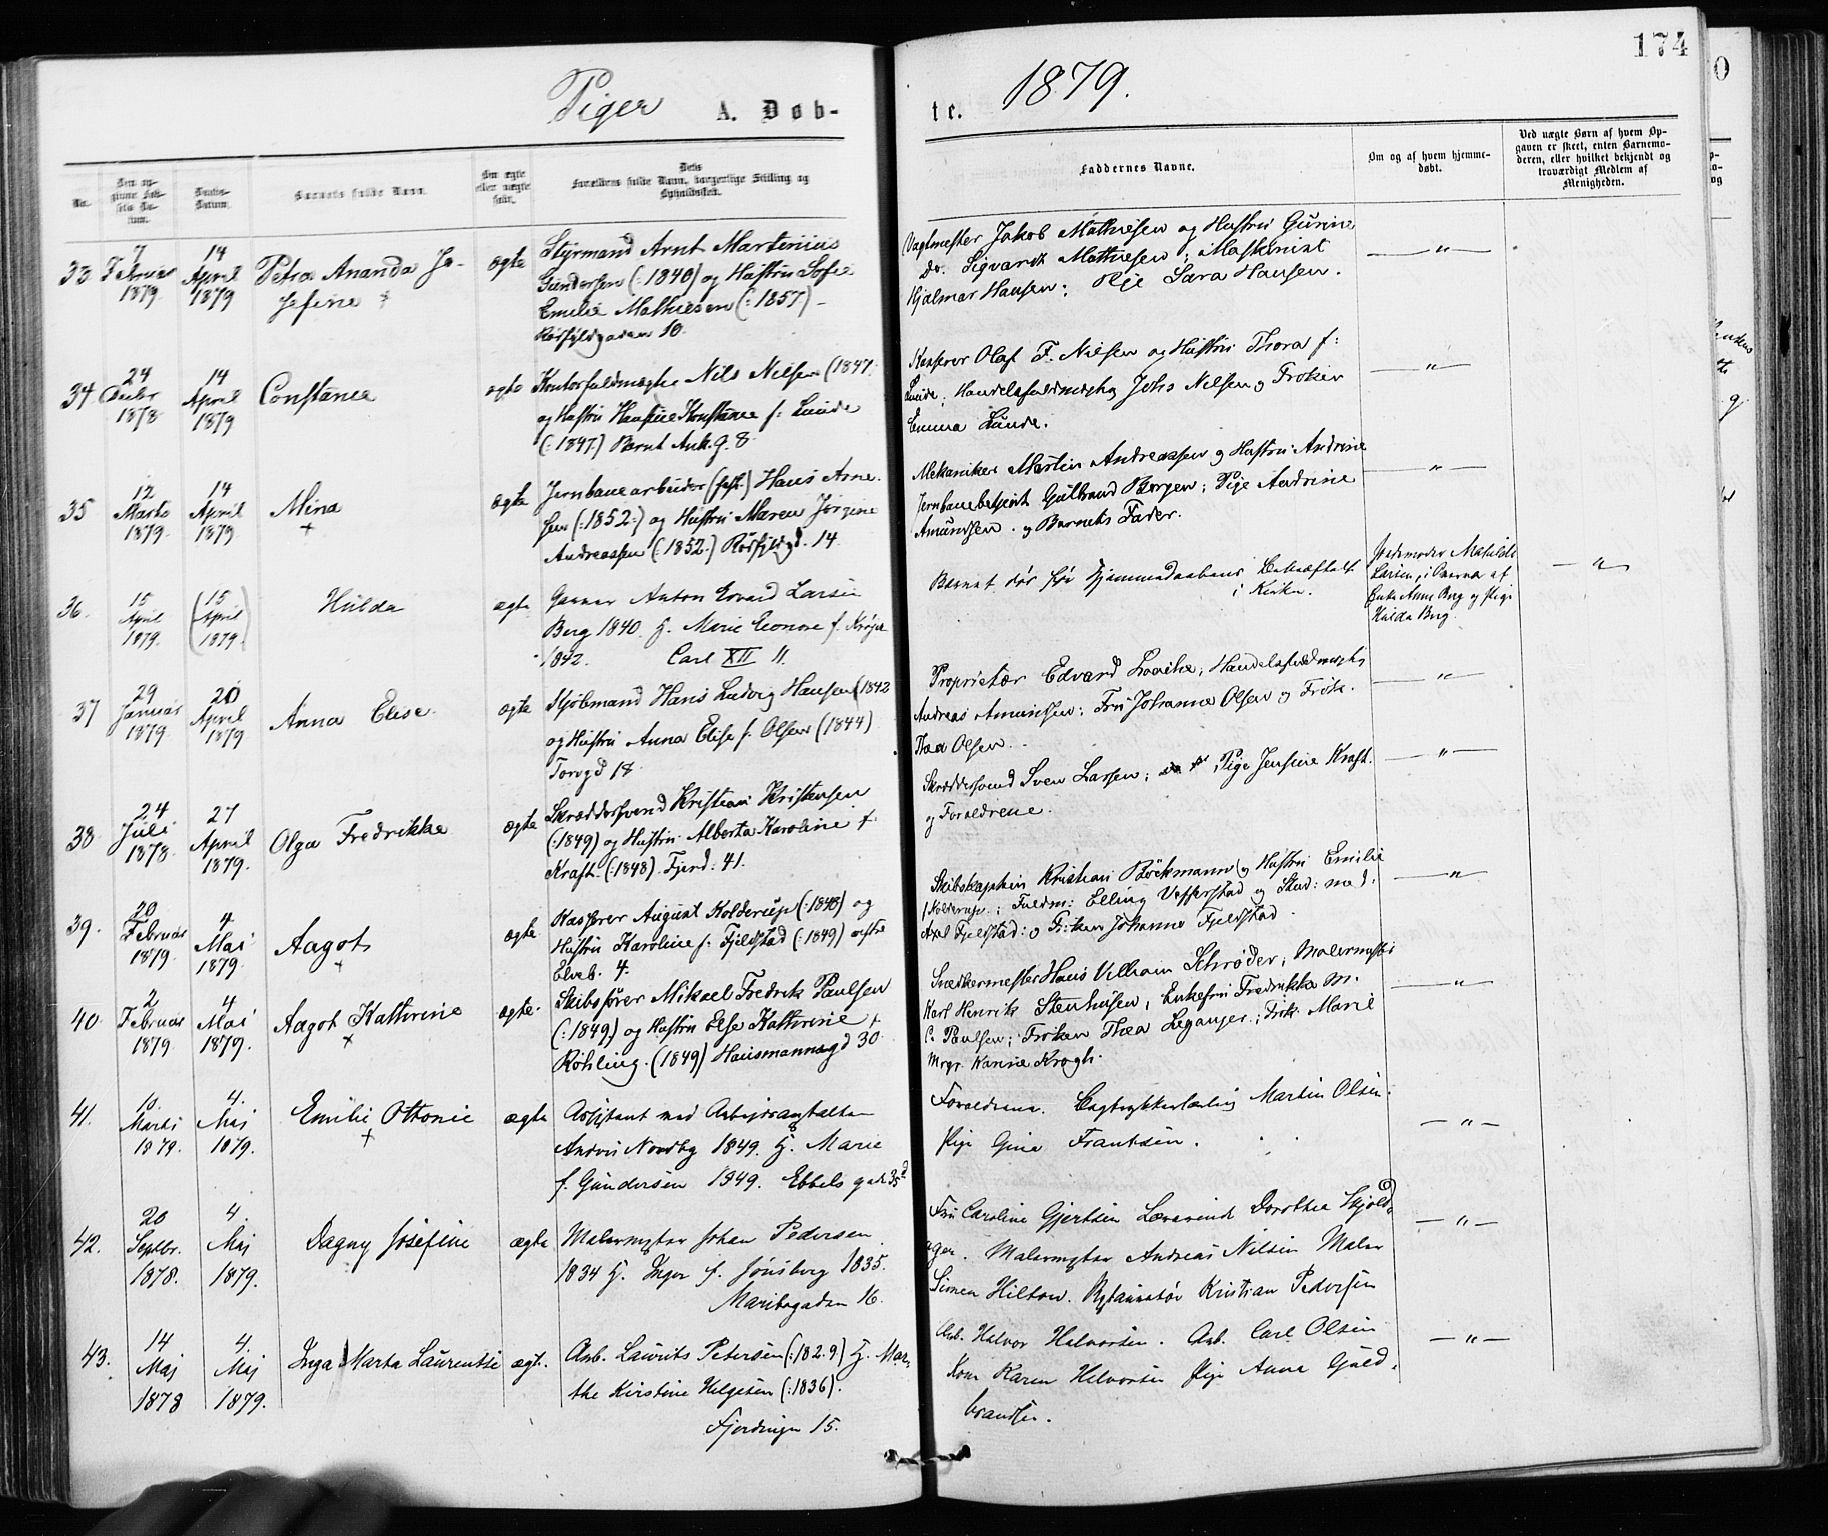 174
Piger
A. Døb-
te.
1879.
No.
Barnets fulde Navn.
Om ægte eller uægte født.
Forældrenes fulde Navn, borgerlige Stilling og Opholdssted.
Faddernes Navne.
Om og af hvem hjemme-
døbt.
Ved uægte Børn af hvem Op-
gaven er skeet, enten Barnemo-
deren, eller hvilket bekjendt og
troværdigt Medlem af
Menigheden.
33 7 Februar 1879. 14 April 1879 Petra Ananda Jo-
sefine + ægte
Styrmand Arnt Martinius
Gundersen (: 1840) og Hustru Sofie
Emilie Mathiesen (: 1857) -
10.
Vagtmester Jakob Mathiesen og Hustru Gurine
do. Sigvardt Mathiesen; Maskinist
Hjalmar Hansen; Pige Sara Hansen.
— " —
34 24 1878 14 April 1879 Constance ægte
Kontorfuldmægtig Nils Nilsen (1847.
og Hustru Konstance f. Lunde
(: 1847) Bernt Ank. g. 8.
Olaf F. Nilsen og Hustru Thora f:
Lunde; Handelsfuldmægtig Johs Nilsen og Frøken
Emma Lunde.
— " —
35 12 Marts 1879. 14 April 1879 Mina + ægte
Jernbanearbeider Hans Arne-
sen (: 1852:) og Hustru Maren Jørgine
Andreassen (: 1852.) 14.
Mekaniker Martin Andreassen og Hustru Andrine
Jernbanebetjent Gulbrand Borgen; Pige Andrine
Amundsen. og Barnets Fader.
— " —
36. 15 April 1879. (15 April 1879.) Hulda ægte
Anton Edvard Larsen
Berg 1840. H. Marie Eleonore f.
1842. Carl XII 11.
Barnet før
i Kirken.
Larsen, i af
Enke Anne Berg og Pige
Hulda Berg.
— " —
37 29 Januar 1879. 20 April 1879 Anna Elise. ægte
Sjømand Hans Ludvig Hansen (1842
og Hustru Anna Elise f. Olsen (1844)
Torvgd 18.
Proprietær Edvard; Handelsfuldmægtig
Andreas Amundsen; Fru Johanne Olsen og Frøk.
Thea Olsen.
— " —
38. 24 Juli 1878. 27 April 1879. Olga Fredrikke ægte
Skræddersvend Kristian Kristensen
(: 1849) og Hustru Alberta Karoline f.
Kraft. (: 1848). Fjerd: 41.
Skræddersvend Sven Larsen; Pige Jensine Kraft.
og Forældrene.
— " —
39. 20 Februar 1879. 4. Mai 1879. Aagot + ægte
Kasserer August Kolderup (: 1848) og
Hustru Karoline f: Fjeldstad (: 1849)
Elveb. 4.
Skibskaptein Kristian Bøckmann og Hustru Emilie
f Kolderup.; Fuldm: Elling og Stud: med:
Axel Fjeldstad: og Frøken Johanne Fjeldstad.
— " —
40. 2 Februar 1879. 4 Mai 1879. Aagot Kathrine + ægte.
Skibsfører Mikael Fredrik Paulsen
(: 1849) og Hustru Else Kathrine f.
Röhling. (1849) Hausmannsgd 30.
Snedkermester Hans Villiam Schrøder; Malermester
Karl Henrik Stenhusen; Enkefru Fredrikke M.
C. Paulsen; Frøken Thea Leganger; Frk. Marie
Mrgr. Karine Krogh.
— " —
41. 10. Marts 1879. 4. Maj 1879. Emilie Ottonie + ægte
Assistent ved Arbejdsanstalten
Nordby 1849. H. Marie
f. Gundersen 1849. Ebbels gade 35 d
Forældrene. Bogtrykkerlærling Martin Olsen.
Pige Gina Frantsen.
— " —
42. 20 Septbr. 1878. 4. Maj 1879. Dagny Josefine ægte
Malermester Johan Pedersen
1834 H. Inger f. Jönsberg 1835.
Maribogaden 16.
Fru Caroline Gjertsen Dorothea Skjold-
ager. Malermester Andreas Nilsen Maler
Simen Hilton. Kristian Pedersen
— " —
43. 14 Maj 1878 4. Maj 1879. Inga Marta Laurentse ægt.
Arb. Laurits Petersen (: 1829.) H. Mar-
the Kirstine Helgesen (: 1836).
Fjerdingen 15.
Arb. Halvor Halvorsen. Arb. Carl Olsen
Kone Karen Helvorsen Pige Anna Guld-
brandsen.
— " —